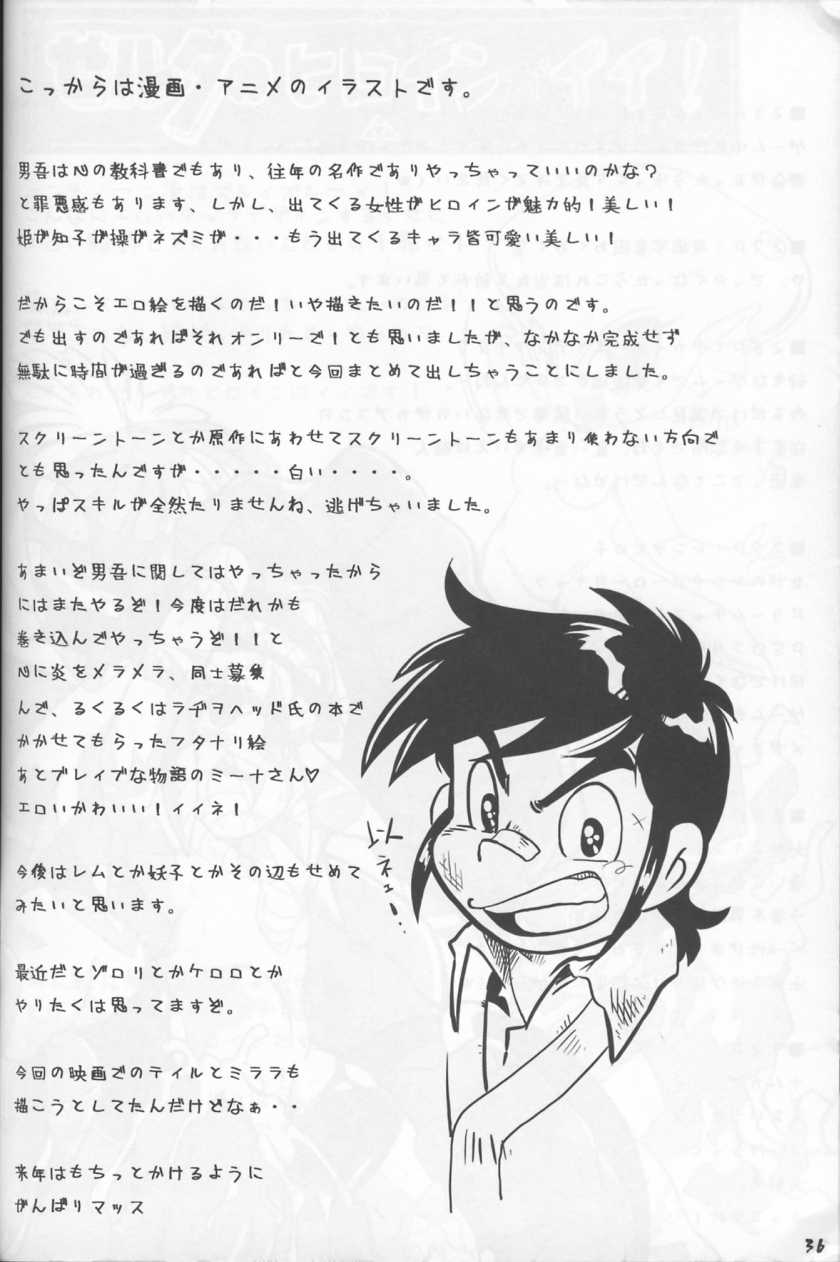 こっからは漫画・アニメのイラストです。
男吾は心の教科書でもあり、往年の名作でありやっちゃっていいのかな?
と罪悪感もあります、しかし、出てくる女性がヒロインが魅力的!美しい!
姫が知子が操がネズミが・・・もう出てくるキャラ皆可愛い美しい!
だからこそエロ絵を描くのだ!いや描きたいのだ!!と思うのです。
でも出すのであればそれオンリーで!とも思いましたが、なかなか完成せず
無駄に時間が過ぎるのであればと今回まとめて出しちゃうことにしました。
スクリーントーンとか原作にあわせてスクリーントーンもあまり使わない方向で
とも思ったんですが・・・・・白い・・・・。
やっぱスキルが全然たりませんね、逃げちゃいました。
あまいぞ男吾に関してはやっちゃったから
にはまたやるぞ!今度はだれかも
巻き込んでやっちゃうぞ!!と
心に炎をメラメラ、同士募集
んで、るくるくはラヂヲヘッド氏の本で
かかせてもらったフタナリ絵
あとブレイブな物語のミーナさん♡
エロいかわいい!イイネ!
今後はレムとか妖子とかその辺もせめて
みたいと思います。
最近だとゾロリとかケロロとか
やりたくは思ってますぞ。
今回の映画でのテイルとミララも
描こうとしてたんだけどなぁ・・
来年はもちっとかけるように
がんばりマッス
36